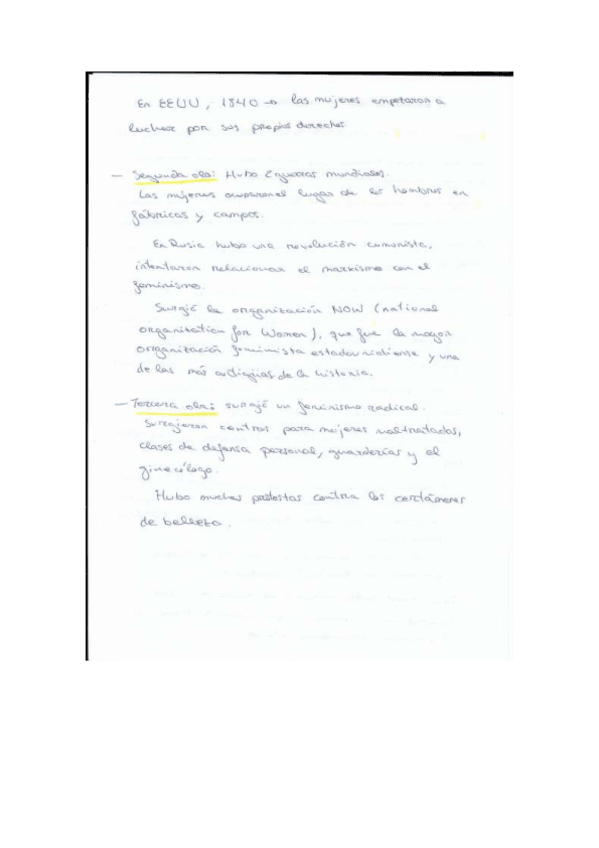 En EEUU, 1840 → las mujeres empezaron a
luchar por sus propios derechos
— Segunda ola: Hubo 2 guerras mundiales.
Las mujeres ocuparon el lugar de los hombres en
fábricas y campos.
En Rusia hubo una revolución comunista,
intentaron relacionar el marxismo con el
feminismo.
Surgió la organización NOW (national
organization for Women), que fue la mayor
organización feminista estadounidense y una
de las más antiguas de la historia.
— Tercera ola: surgió un feminismo radical.
Surgieron centros para mujeres maltratadas,
clases de defensa personal, guarderías y el
ginecólogo.
Hubo muchas protestas contra los certámenes
de belleza.